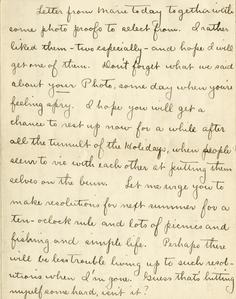 Letter from Marie today together with
some photo proofs to select from. I rather
liked them - two especially - and hope I will
get one of them. Don't forget what we said
about your Photo, some day when you're
feeling spry. I hope you will get a
chance to rest up now for a while after
all the tumult of the Holidays, when people
seem to vie with each other at putting them
selves on the bum. Let me urge you to
make resolutions for next summer for a
ten-oclock rule and lots of picnics and
fishing and simple life. Perhaps there
will be less trouble living up to such resol-
utions when I'm gone. Guess that's hitting
myself some hard, isn't it?